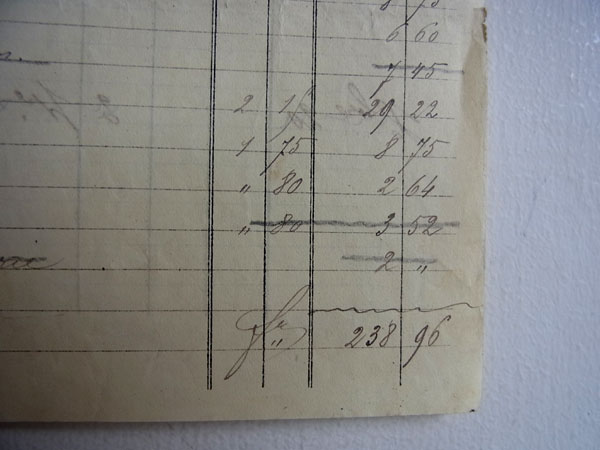 6 60
7 45
2 29 22
1 75 8 75
" 80 2 64
" 80 3 52
2 "
238 96